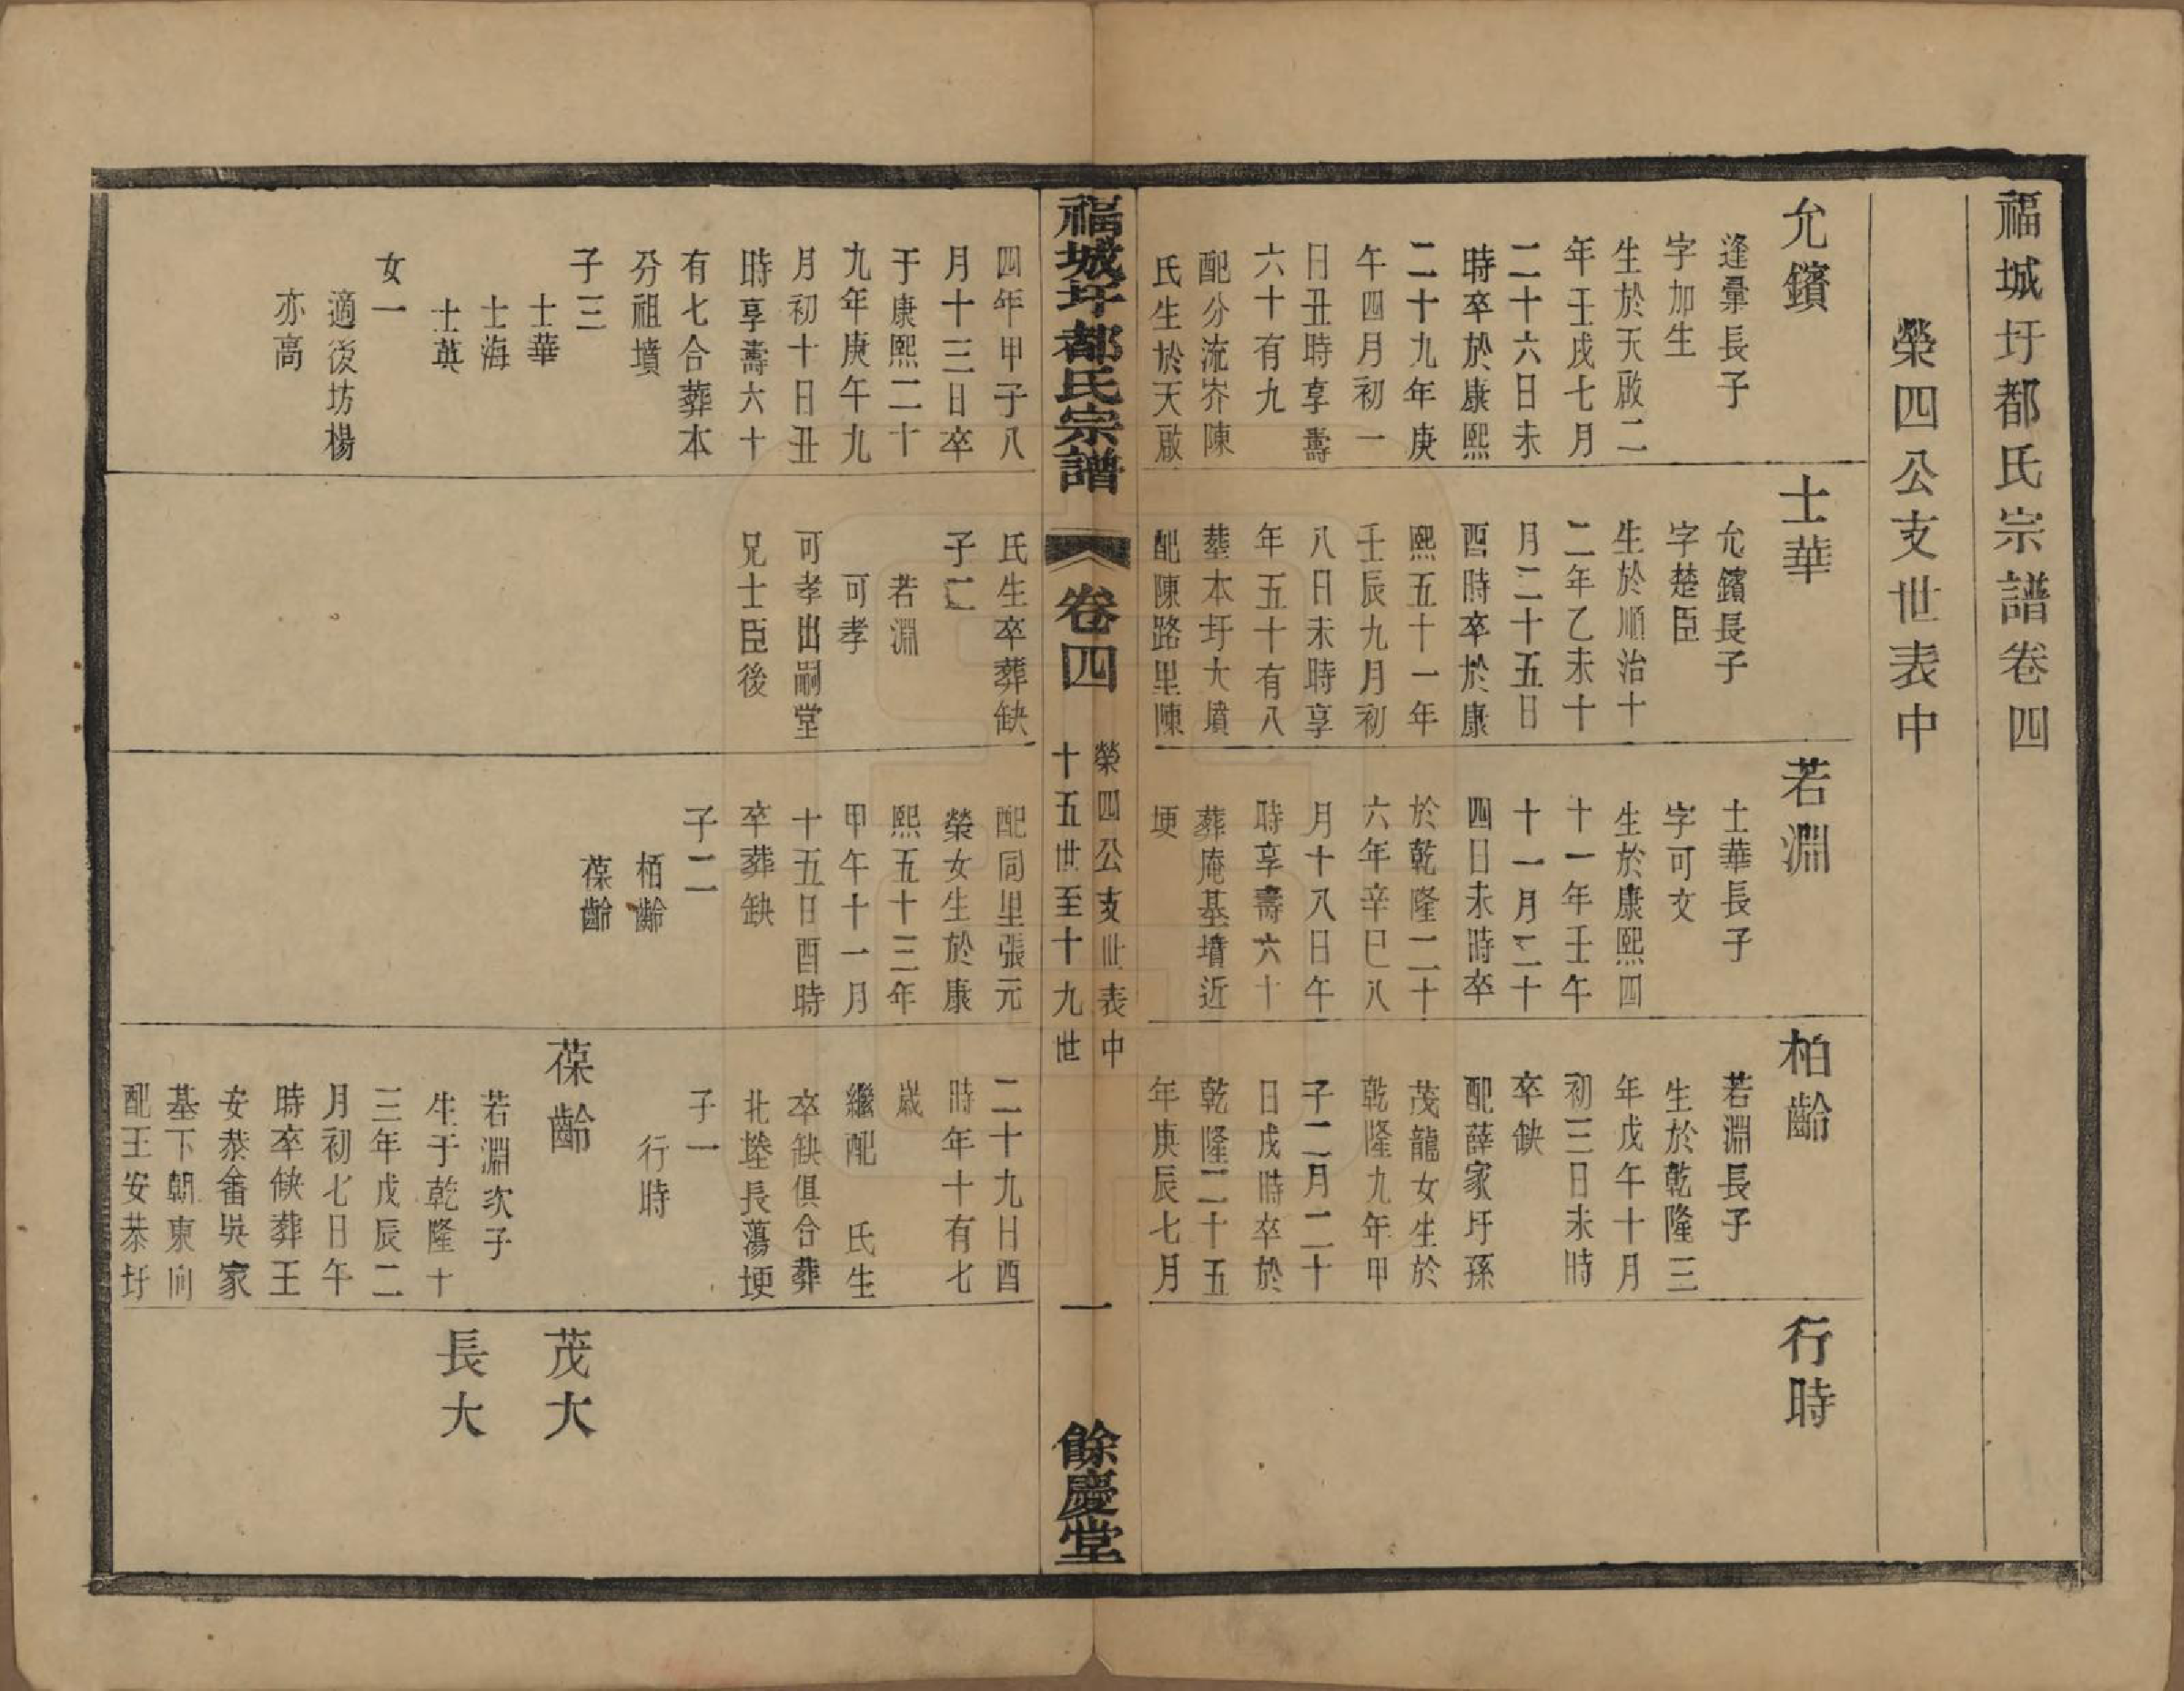 福城圩都氏宗譜卷四
榮四公支世表中
允鑌
逢彙長子
字加生
生於天啟二
年壬戌七月
二十六日未
時卒於康熙
二十九年庚
午四月初一
日丑時享壽
六十有九
配分流岕陳
氏生於天啟
士華
允鑌長子
字楚臣
生於順治十
二年乙未十
月二十五日
酉時卒於康
熙五十一年
壬辰九月初
八日未時享
年五十有八
葬本圩大墳
配陳路里陳
若淵
士華長子
字可文
生於康熙四
十一年壬午
十一月二十
四日未時卒
於乾隆二十
六年辛巳八
月十八日午
時享壽六十
葬庵基墳近
埂
柏齡
若淵長子
生於乾隆三
年戊午十月
初三日未時
卒缺
配薛家圩孫
茂龍女生於
乾隆九年甲
子二月二十
日戌時卒於
乾隆二十五
年庚辰七月
行時
福城圩都氏宗譜
卷四
榮四公支世表中
十五世至十九世
一
餘慶堂
四年甲子八
月十三日卒
于康熙二十
九年庚午九
月初十日丑
時享壽六十
有七合葬本
分祖墳
子三
士華
士海
士英
女一
適後坊楊
亦高
氏生卒葬缺
子二
若淵
可孝
可孝出嗣堂
兄士臣後
配同里張元
榮女生於康
熙五十三年
甲午十一月
十五日酉時
卒葬缺
子二
栢齡
葆齡
二十九日酉
時年十有七
歲
繼配　氏生
卒缺俱合葬
北埄長蕩埂
子一
行時
葆齡
若淵次子
生于乾隆十
三年戊辰二
月初七日午
時卒缺葬王
安恭畣吳家
基下朝東向
配王安恭圩
茂大
長大